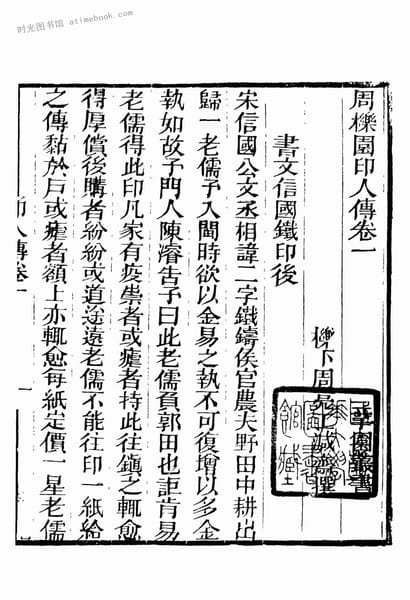 时光图书馆 atimebook.com
周櫟園印人傳卷一
櫟下周亮工減齋撰
芋園叢書
書文信國鐵印後
宋信國公文丞相諱二字鐵鑄侯官農夫野田中耕出
歸一老儒予入閩時欲以金易之執不可復增以多金
執如故予門人陳濬告予曰此老儒負郭田也詎肯易
老儒得此印凡家有疫祟者或瘧者持此往鎮之輒愈
得厚償後購者紛紛或道途遠老儒不能往印一紙給
之傳黏於戶或瘧者額上亦輒愈每紙定價一星老儒
印人傳卷一
一